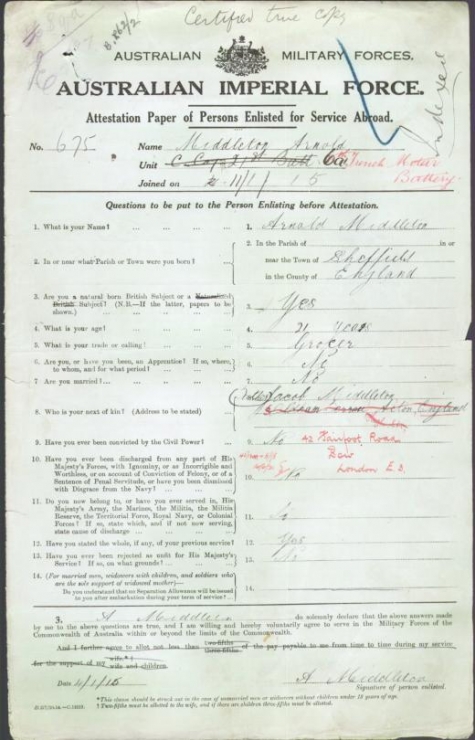 Certified true copy
AUSTRALIAN MILITARY FORCES.
AUSTRALIAN IMPERIAL FORCE.
Attestation Paper of Persons Enlisted for Service Abroad.
Indexed
No. 675 Name Middleton Arnold
Unit C Coy 21st Batt Trench Motor Battery
Joined on 11/1/15
Questions to be put to the Person Enlisting before Attestation.
1. What is your Name? 1. Arnold Middleton
2. In or near what Parish or Town were you born? 2. In the Parish of in or
near the Town of Sheffield
in the County of England
3. Are you a natural born British Subject or a Naturalised 3. Yes
British Subject? (N.B.—If the latter, papers to be
shown.)
4. What is your age? 4. 21 years
5. What is your trade or calling? 5. Grocer
6. Are you, or have you been, an Apprentice? If so, where, 6. No
to whom, and for what period?
7. Are you married? 7. No
8. Who is your next of kin? (Address to be stated) 8. Jacob Middleton
England
9. Have you ever been convicted by the Civil Power? 9. No
Road
London E.3.
10. Have you ever been discharged from any part of His 10. No
Majesty's Forces, with Ignominy, or as Incorrigible and
Worthless, or on account of Conviction of Felony, or of a
Sentence of Penal Servitude, or have you been dismissed
with Disgrace from the Navy?
11. Do you now belong to, or have you ever served in, His 11.
Majesty's Army, the Marines, the Militia, the Militia
Reserve, the Territorial Force, Royal Navy, or Colonial
Forces? If so, state which, and if not now serving,
state cause of discharge
12. Have you stated the whole, if any, of your previous service? 12. Yes
13. Have you ever been rejected as unfit for His Majesty's 13. No
Service? If so, on what grounds?
14. (For married men, widowers with children, and soldiers who 14.
are the sole support of widowed mother)—
Do you understand that no Separation Allowance will be issued
to you after embarkation during your term of service?
A Middleton do solemnly declare that the above answers made
by me to the above questions are true, and I am willing and hereby voluntarily agree to serve in the Military Forces of the
Commonwealth of Australia within or beyond the limits of the Commonwealth.
And I further agree to allot not less than two-fifths three-fifths of the pay payable to me from time to time during my service
for the support of my wife.* wife and children.
Date 4/1/15 A Middleton
Signature of person enlisted.
*This clause should be struck out in the case of unmarried men or widowers without children under 18 years of age.
† Two-fifths must be allotted to the wife, and if there are children three-fifths must be allotted.